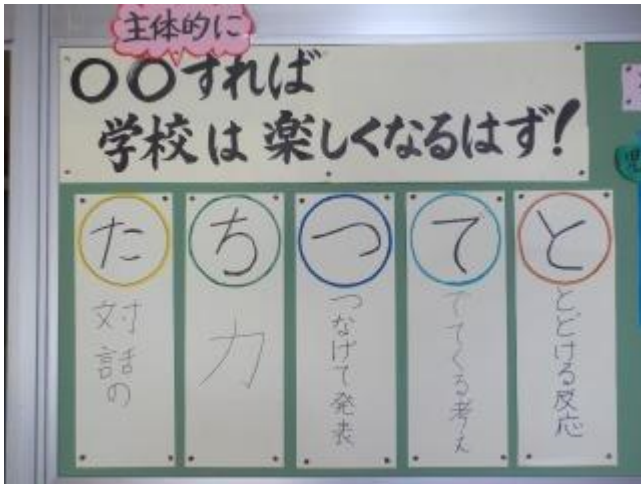 主体的に
〇〇すれば
学校は楽しくなるはず!
た
対話の
ち
力
つ
つなげて発表
て
でてくる考え
と
とどける反応
児